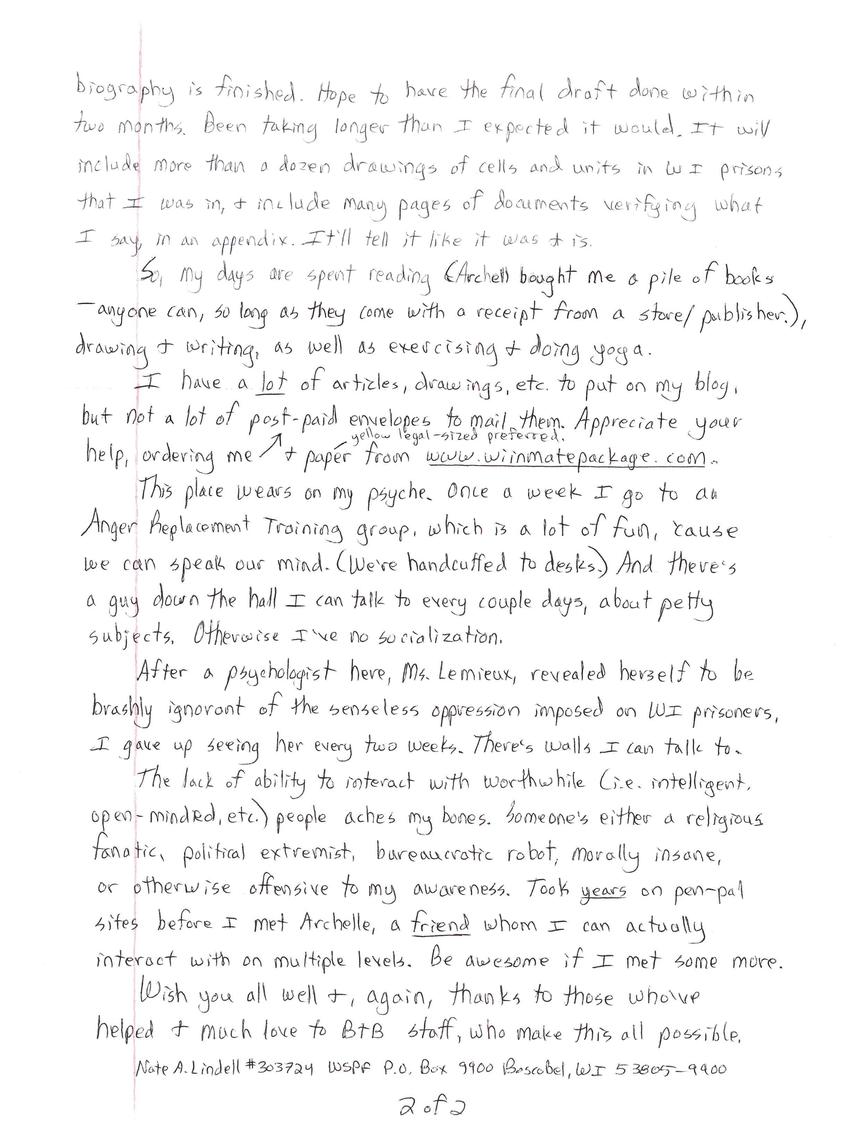 biography is finished. Hope to have the final draft done within
two months. Been taking longer than I expected it would. It will
include more than a dozen drawings of cells and units in WI prisons
that I was in, + include many pages of documents verifying what
I say, in an appendix. It'll tell it like it was + is.
So, my days are spent reading (Archell bought me a pile of books
—anyone can, so long as they come with a receipt from a store/publisher.),
drawing + writing, as well as exercising + doing yoga.
I have a lot of articles, drawings, etc. to put on my blog,
but not a lot of post-paid envelopes to mail them. Appreciate your
yellow legal-sized preferred.
help, ordering me ↗ + paper from www.wiinmatepackage.com.
This place wears on my psyche. Once a week I go to an
Anger Replacement Training group, which is a lot of fun, 'cause
we can speak our mind. (We're handcuffed to desks.) And there's
a guy down the hall I can talk to every couple days, about petty
subjects. Otherwise I've no socialization.
After a psychologist here, Ms. Lemieux, revealed herself to be
brashly ignorant of the senseless oppression imposed on WI prisoners,
I gave up seeing her every two weeks. There's walls I can talk to.
The lack of ability to interact with worthwhile (i.e. intelligent,
open-minded, etc.) people aches my bones. Someone's either a religious
fanatic, political extremist, bureaucratic robot, morally insane,
or otherwise offensive to my awareness. Took years on pen-pal
sites before I met Archelle, a friend whom I can actually
interact with on multiple levels. Be awesome if I met some more.
Wish you all well +, again, thanks to those who've
helped + much love to BtB staff, who make this all possible.
Nate A. Lindell #303724 WSPF P.O. Box 9900 Boscobel, WI 53805-9900
2 of 2